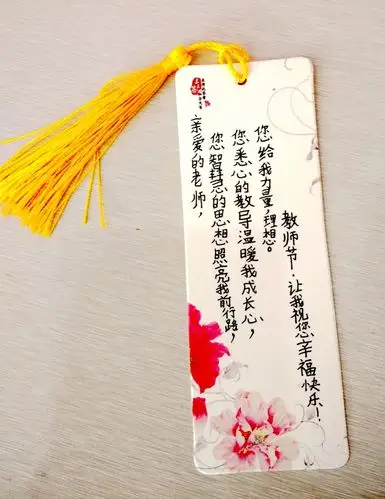 亲爱的老师，
您智慧的思想照亮我前行路，
您悉心的教导温暖我成长心，
您给我力量，理想。
教师节．让我祝您幸福快乐！